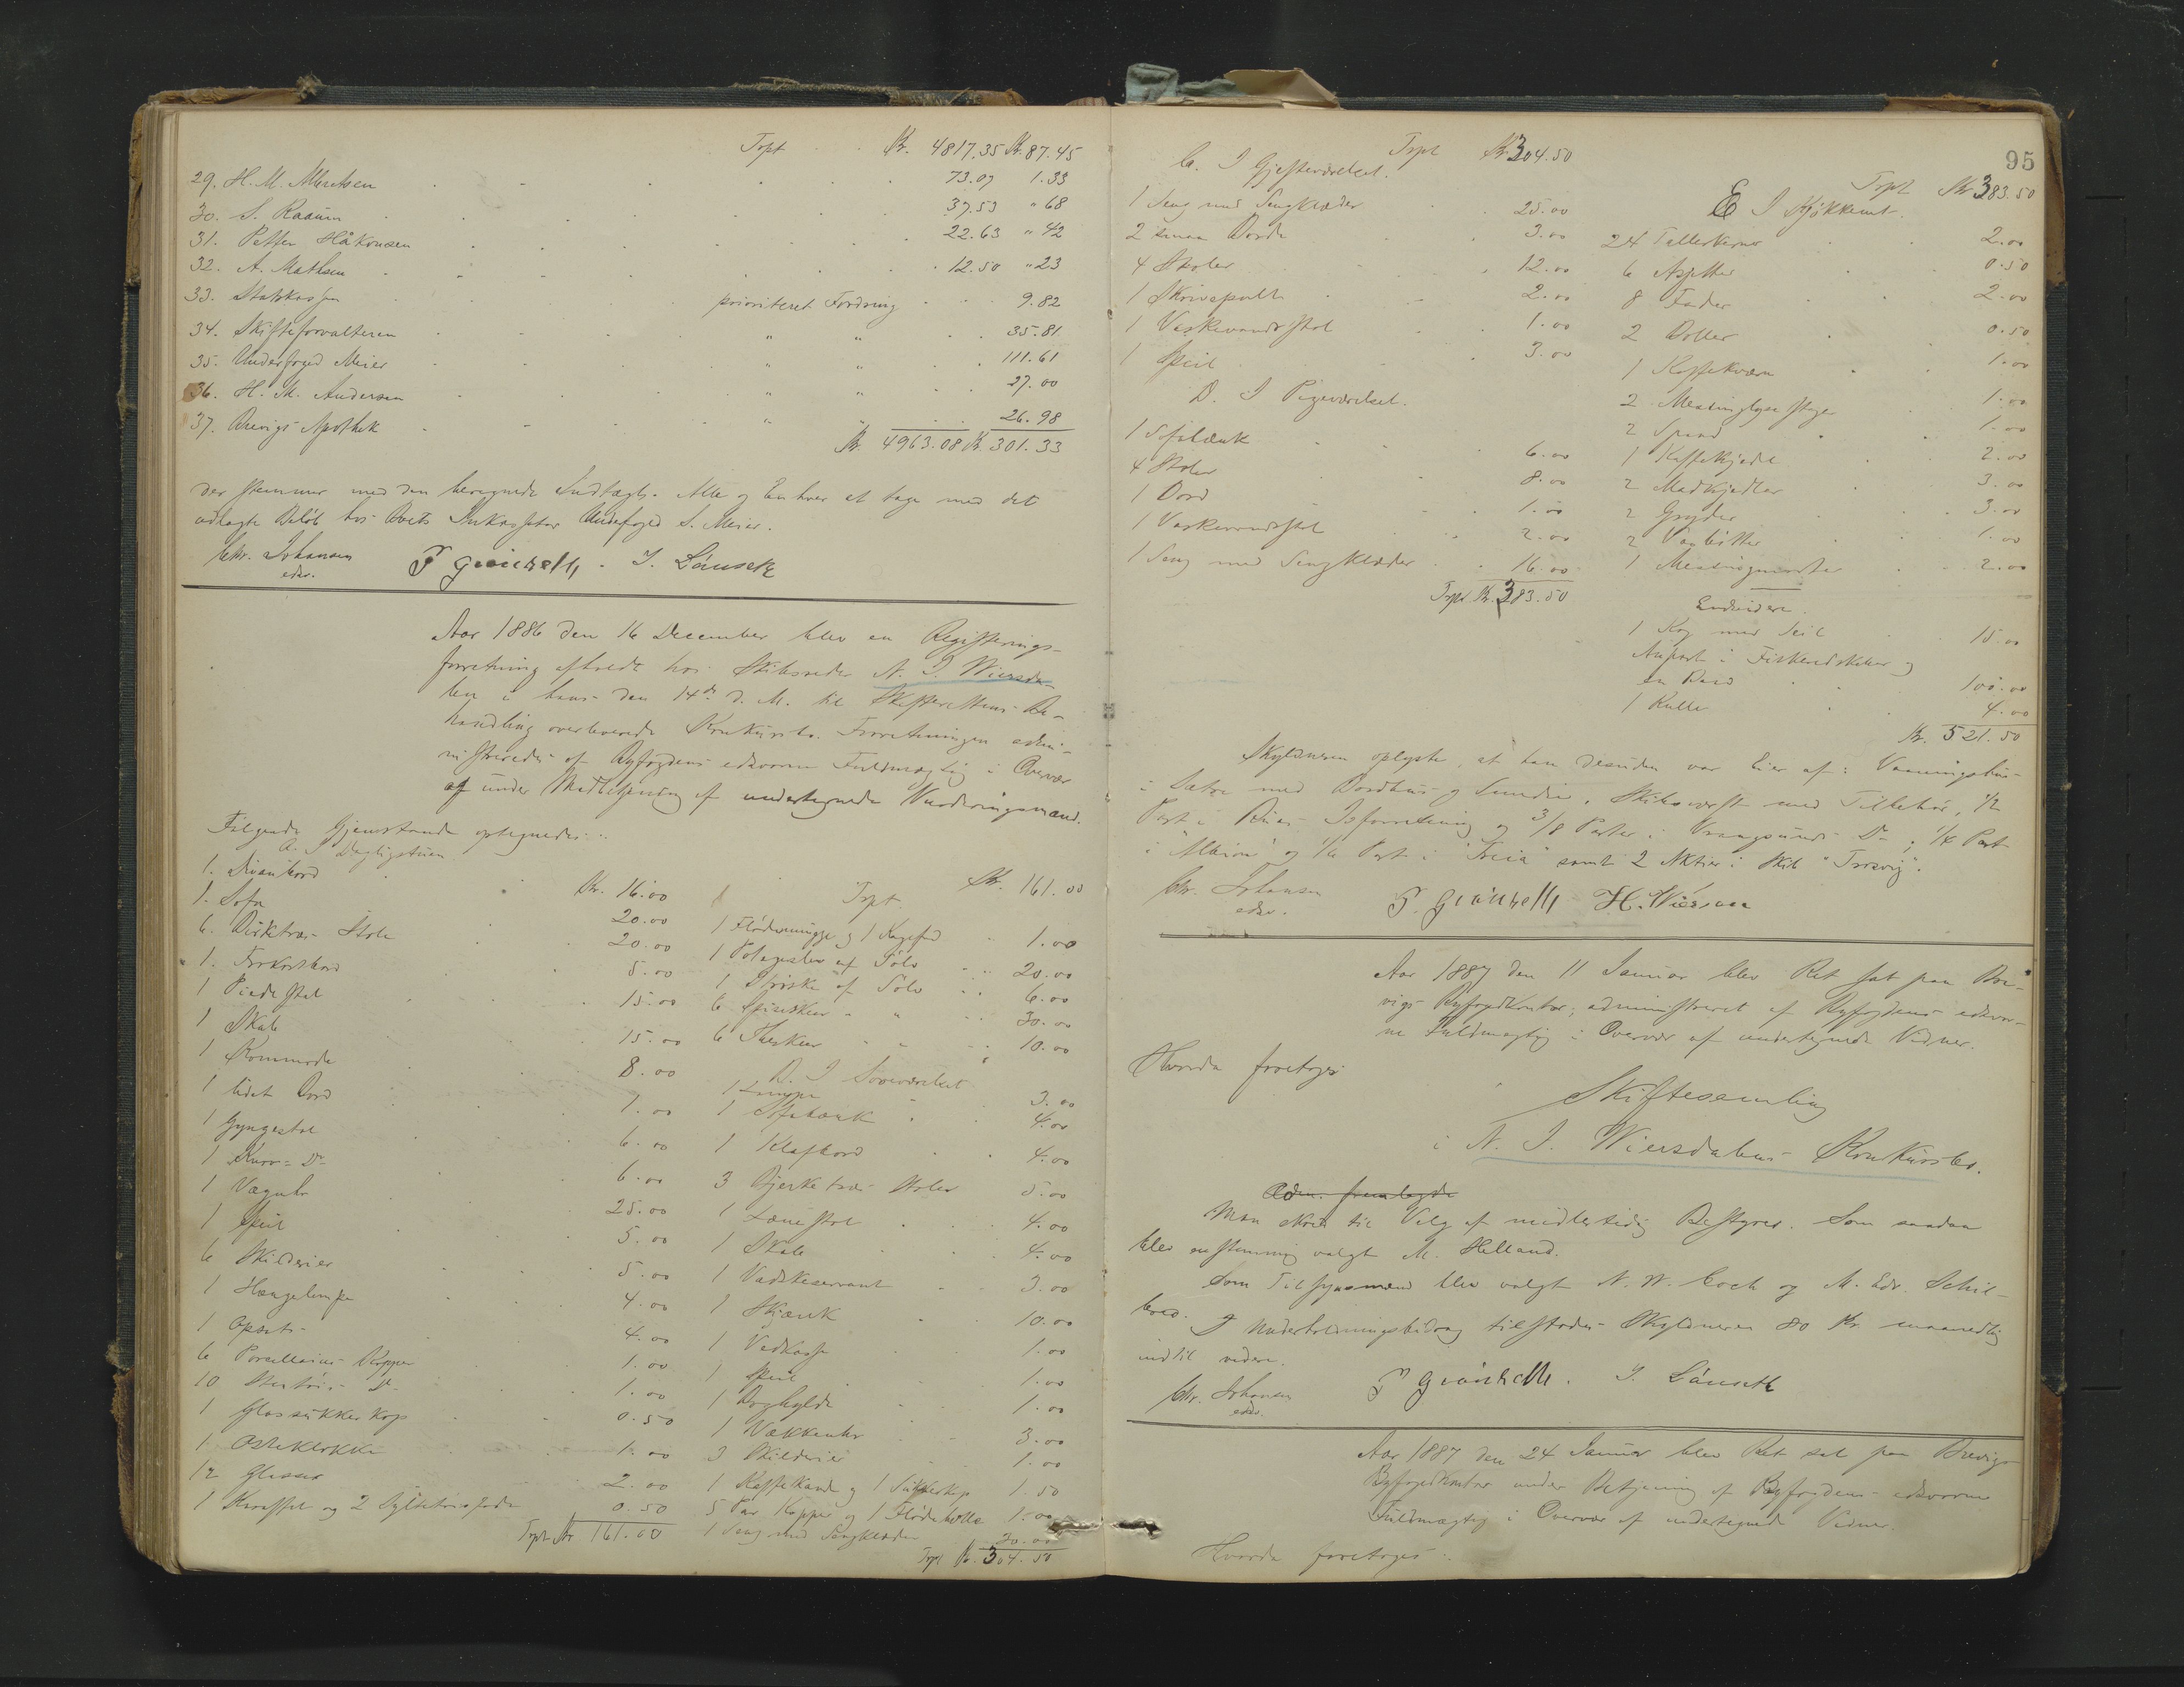 Trpt Kr. 4817.35 Kr. 87.45
29. H. M. Albretsen 73.07 1.33
30. S. Raaum 37.53 " 68
31. Petter Håkonsen 22.63 " 42
32. A. Mathsen 12.50 " 23
33. Statskassen prioriteret Fordring 9.82
34. Skifteforvalteren " " 35.81
35. Underfoged Meier " " 111.61
36. H. M. Andersen " " 27.00
37. Brevigs Apothek " " 26.98
Kr. 4963.08 Kr. 301.33
der stemmer med den beregnede Indtægt. Alle og Enhver at tage med det
udlagte Beløb hos Boets Inkassator Underfoged S. Meier.
Chr. Johansen
edsv.
P Grönseth. J. Lönseth
Aar 1886 den 16 December blev en Registrerings-
forretning afholdt hos Skibsreder N. J. Wiersda-
len i hans den 14de d. M. til Skifterettens Be-
handling overleverede Konkursbo. Forretningen admi-
nistreredes af Byfogdens edsvorne Fuldmægtig i Overvær
af under Medbetjening af undertegnede Vurderingsmænd.
Følgende Gjenstande optegnedes:
A. I Dagligstuen
1. Divanbord Kr. 16.00
1. Sofa 20.00
6. Birketræs Stole 20.00
1. Frokostbord 5.00
1 Piedestal 15.00
1 Skab 15.00
1 Kommode 8.00
1 lidet Bord 7.00
1 Gyngestol 6.00
1 Kurv- Do 6.00
1 Væguhr 25.00
1 Speil 5.00
6 Skilderier 5.00
1 Hængelampe 4.00
1 Opsats 4.00
6 Porcellains Kopper 1.00
10 Stentøis Do 1.00
1 Glassukkerkop 0.50
1 Osteklokke 1.00
12 Glasse 2.00
1 Karaffel og 2 Syltetøisfade 0.50
Trpt Kr 161.00
Trpt. Kr. 161.00
1 Flødemugge og 1 Kagefad 1.00
1 Potageslev af Sølv 20.00
1 Strøske af Sølv 6.00
6 Spiseskeer " " 30.00
6 Theskeer " " 10.00
B. I Soveværelset
1 Lampe 3.00
1 Sofabænk 4.00
1 Klafbord 4.00
3 Bjerketræs Stoler 5.00
1 Lænestol 4.00
1 Skab 4.00
1 Vadskeservant 3.00
1 Skjænk 10.00
1 Vedkasse 1.00
1 Speil 1.00
1 Boghylde 1.00
1 Vækkeuhr 3.00
3 Skilderier 1.00
1 Kaffekande og 1 Sukkerkop 1.50
5 Par Kopper og 1 Flødebolle 1.00
1 Seng med Sengklæder 30.00
Trpt Kr. 304.50
95
Trpt Kr 304.50
C. I Gjesteværelset.
1 Seng med Sengklæder 25.00
2 smaa Borde 3.00
4 Stoler 12.00
1 Skrivepult 2.00
1 Vaskevandsstol 1.00
1 Speil 3.00
D. I Pigeværelset.
1 Sofabænk 6.00
4 Stoler 8.00
1 Bord 1.00
1 Vaskevandsstol 2.00
1 Seng med Sengklæder 16.00
Trpt Kr. 383.50
Trpt Kr 383.50
E I Kjøkkenet.
24 Tallerkener 2.00
6 Asjetter 0.50
8 Fader 2.00
2 Boller 0.50
1 Kaffekværn 1.00
2 Messinglysestager 1.00
2 Spand 1.00
1 Kaffekjedel 2.00
2 Madkjedler 3.00
2 Gryder 3.00
2 Vanbøtter 1.00
1 Messingmorter 2.00
Endvidere.
1 Kog med Seil 15.00
Anpart i Fiskeredskaber og
en Baad 100.00
1 Rulle 4.00
Kr. 521.50
Skyldneren oplyste, at han desuden var Eier af: Vaaningshus
i Sætre med Bordhus og Smedie, Skibsværft med Tilbehør, 1/2
Part i Riis Isforretning og 3/8 Parter i Vrangsunds Do, 1/4 Part
i "Albion" og 1/6 Part i "Freia" samt 2 Aktier i Skib "Trosvig".
Chr. Johansen
edsv.
P. Grönseth H. Wiersen
Aar 1887 den 11 Januar blev Ret sat paa Bre-
vigs Byfogedkontor, administreret af Byfogdens edsvor-
ne Fuldmægtig i Overvær af undertegnede Vidner.
Hvorda foretoges:
Skiftesamling
i N. J. Wiersdalens Konkursbo.
Adm. fremlagde
Man skred til Valg af midlertidig Bestyrer. Som saadan
blev enstemmig valgt M. Helland.
Som Tilsynsmænd blev valgt N. W. Coch og M. Edv. Schil-
bred. I Underholdningsbidrag tilstodes Skyldneren 80 Kr. maanedlig
indtil videre.
Chr. Johansen
edsv.
P Grönseth. J. Lönseth
Aar 1887 den 24 Januar blev Ret sat paa Brevigs
Byfogedkontor under Betjening af Byfogdens edsvorne
Fuldmægtig i Overvær af undertegnede Vidner.
Hvorda foretoges: